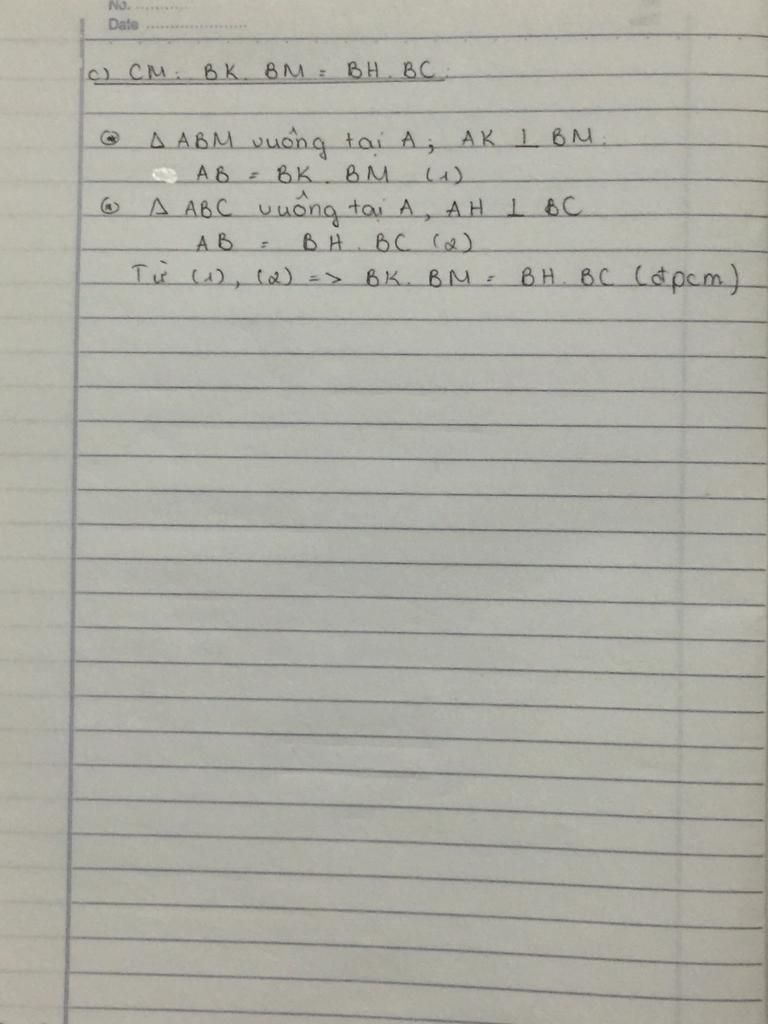 No. ..........
Date ....................
c) CM: BK. BM = BH. BC.
* Δ ABM vuông tại A; AK ⊥ BM.
AB = BK. BM (1)
* Δ ABC vuông tại A, AH ⊥ BC
AB = BH. BC (2)
Từ (1), (2) => BK. BM = BH. BC (đpcm)